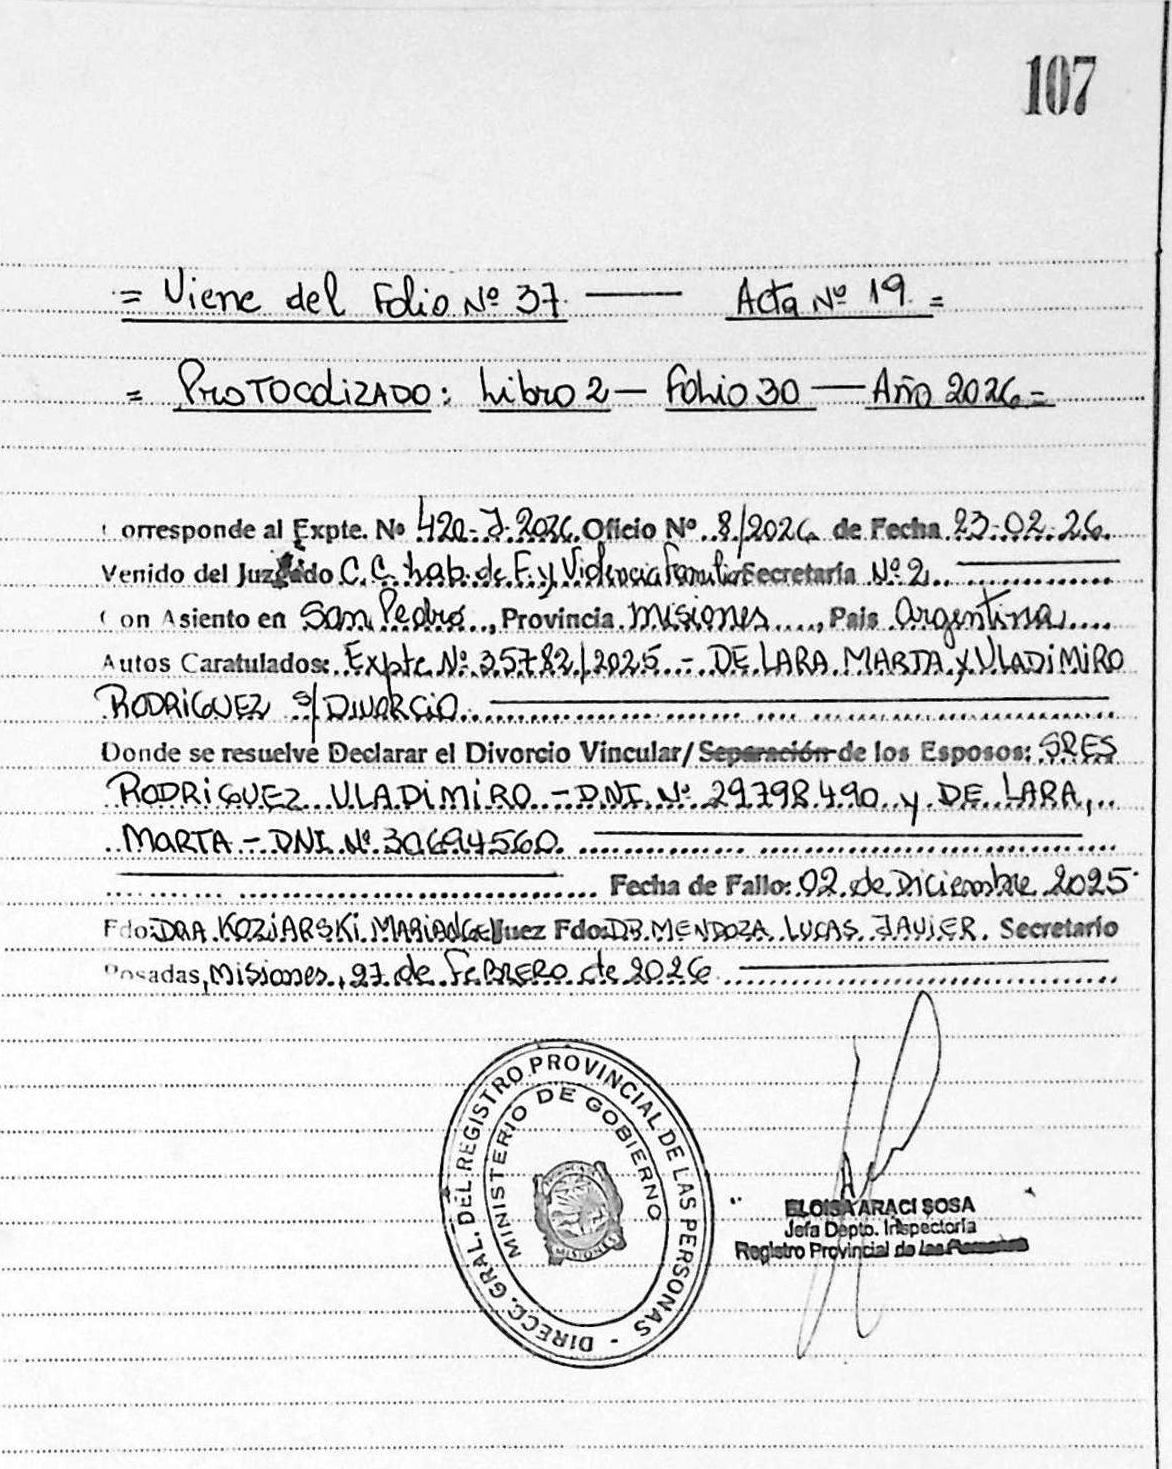 107
= Viene del Folio Nº 37. —— Acta Nº 19. =
= PROTOCOLIZADO: Libro 2 — Folio 30 — Año 2026 =
Corresponde al Expte. Nº 420-J-2026 Oficio Nº 8/2026 de Fecha 23-02-26.
Venido del Juzgado C.C. Lab. de F. y Violencia Familiar Secretaría Nº 2
Con Asiento en San Pedro, Provincia Misiones, Pais Argentina
Autos Caratulados: Expte Nº 35782/2025 - DE LARA MARTA y VLADIMIRO
RODRIGUEZ s/ DIVORCIO
Donde se resuelve Declarar el Divorcio Vincular/Separación de los Esposos: SRES
RODRIGUEZ VLADIMIRO - DNI Nº 29798490 y DE LARA,
MARTA - DNI Nº 30694560.
Fecha de Fallo: 02 de Diciembre 2025
Fdo: DRA KOZIARSKI MARIANGE Juez Fdo: DR MENDOZA LUCAS JAVIER. Secretario
Posadas, Misiones, 27 de FEBRERO de 2026
DIRECC. GRAL. DEL REGISTRO PROVINCIAL DE LAS PERSONAS -
MINISTERIO DE GOBIERNO
ELOISA ARACI SOSA
Jefa Depto. Inspectoría
Registro Provincial de las Personas